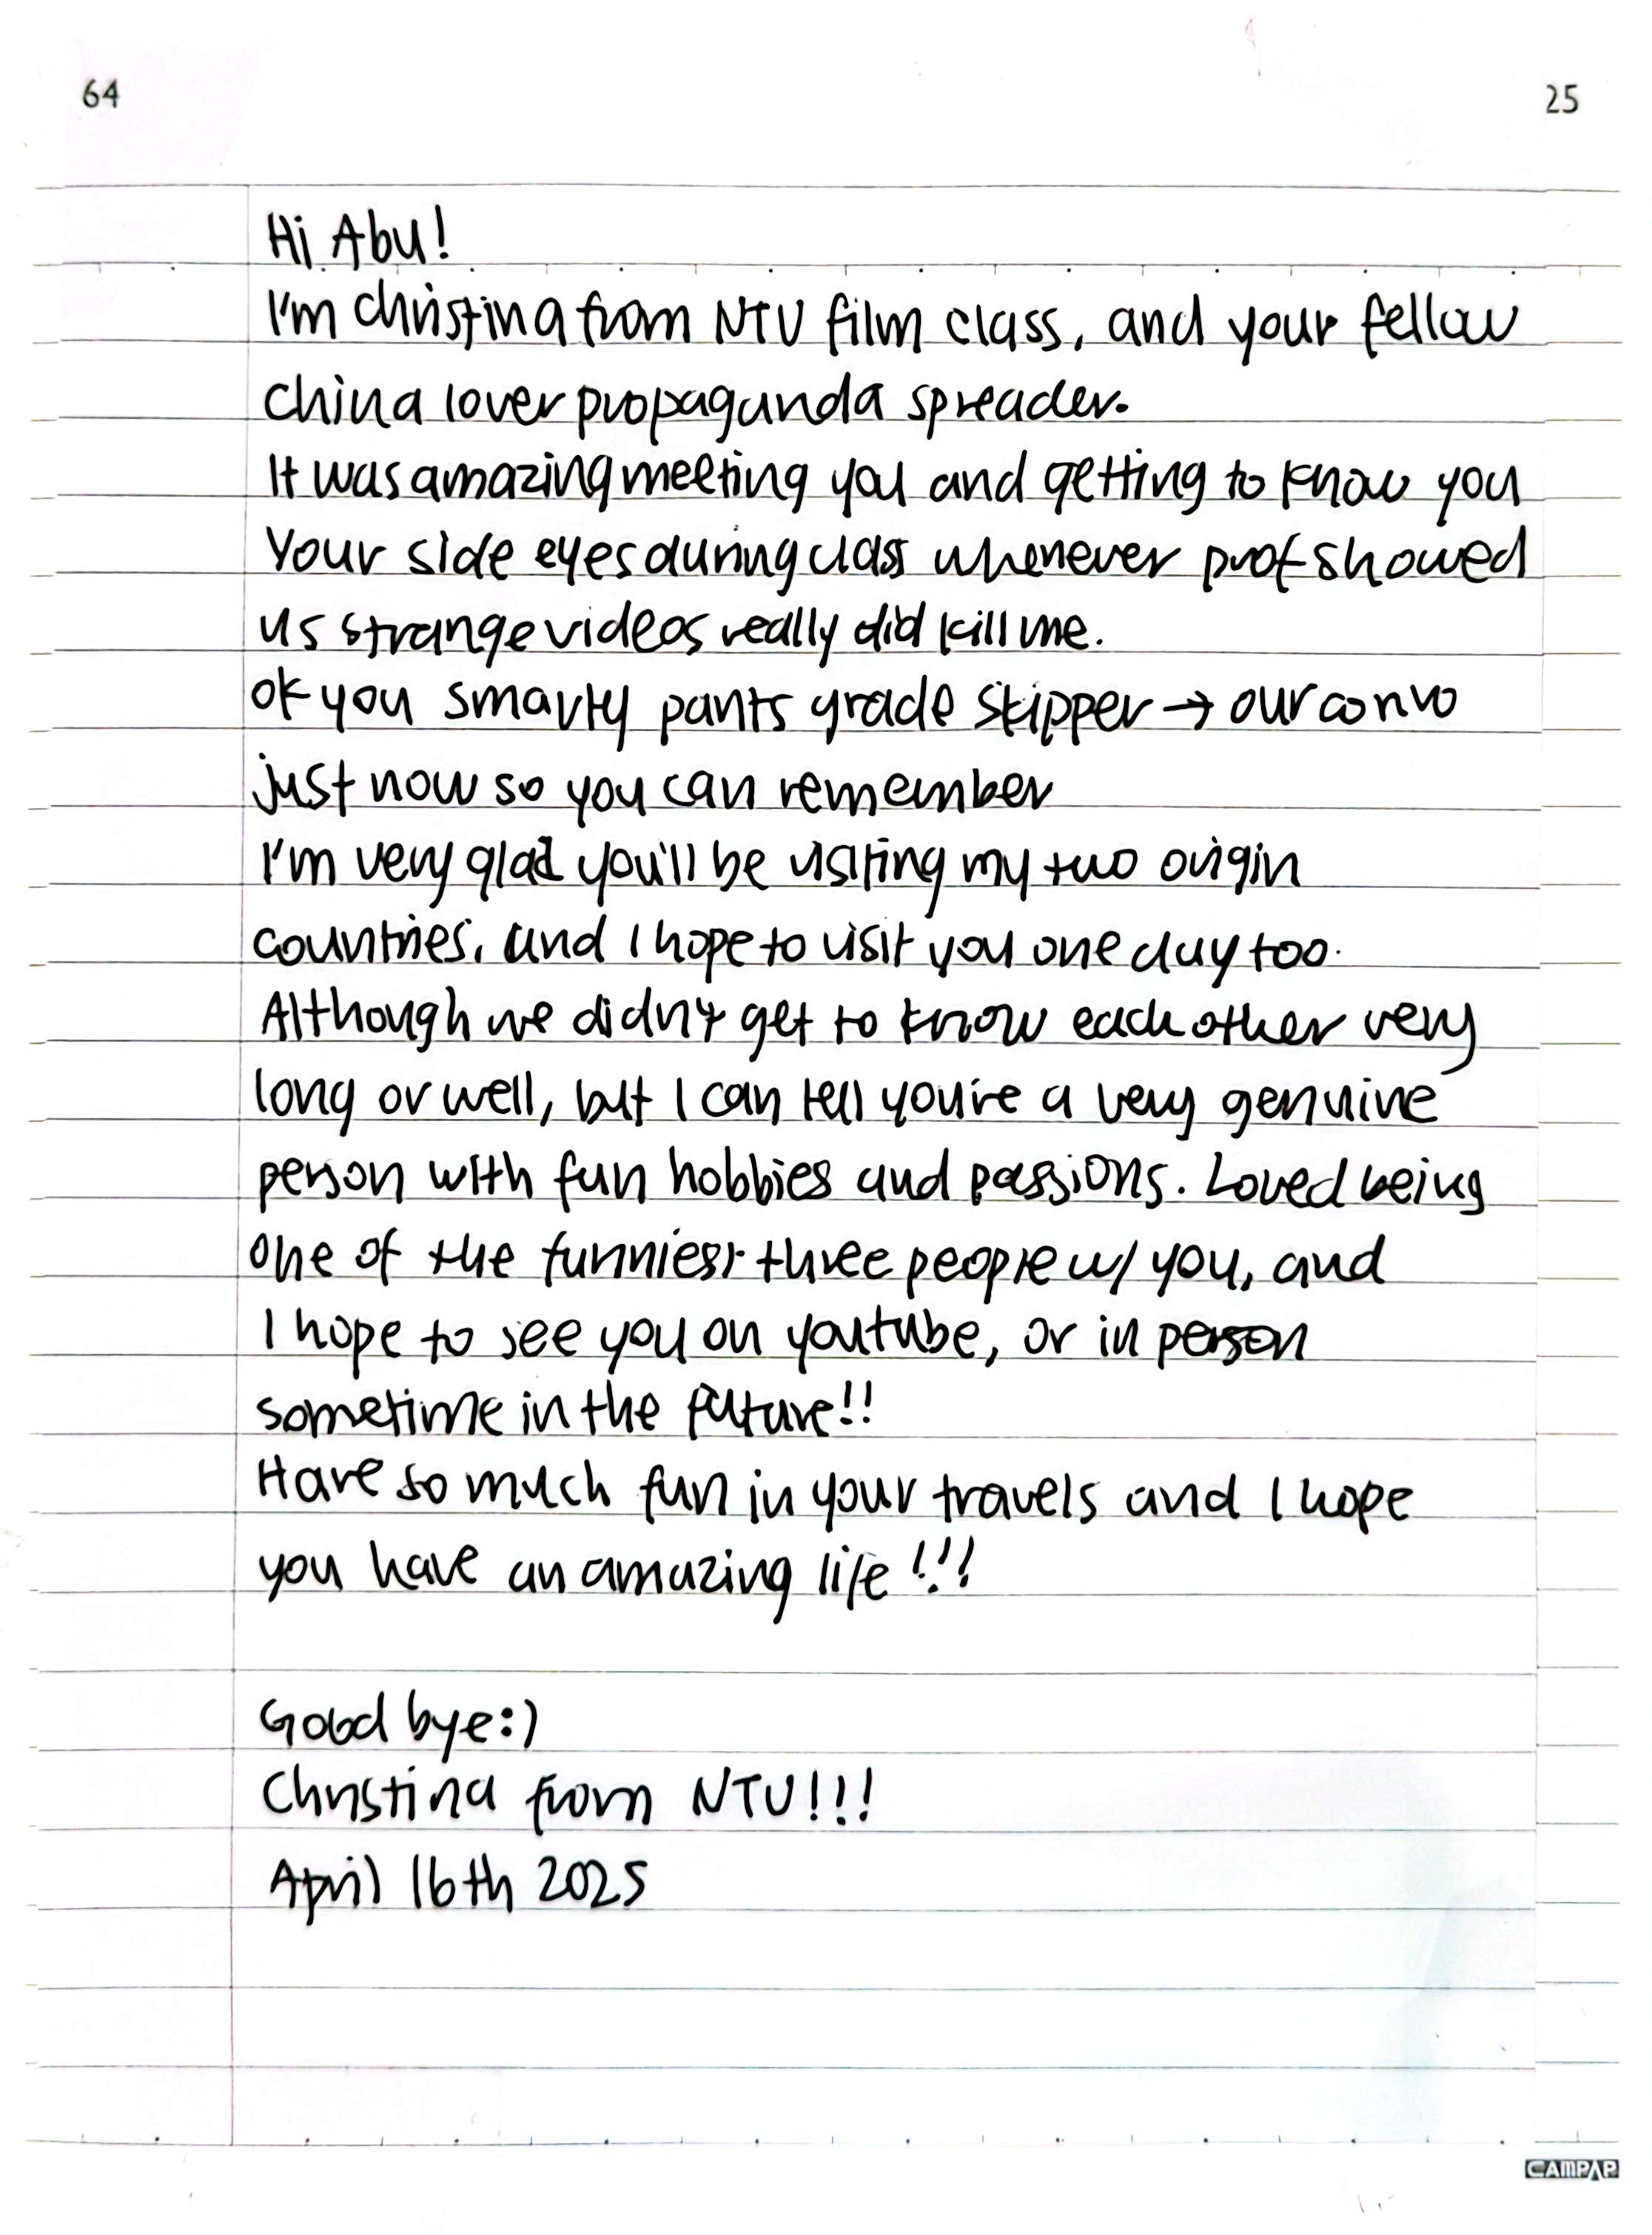 64 25
Hi Abu!
I'm christina from NTU film class, and your fellow
china lover propaganda spreader.
It was amazing meeting you and getting to know you
Your side eyes during class whenever prof showed
us strange videos really did kill me.
ok you smarty pants grade skipper → our convo
just now so you can remember
I'm very glad you'll be visiting my two origin
countries, and I hope to visit you one day too.
Although we didn't get to know each other very
long or well, but I can tell you're a very genuine
person with fun hobbies and passions. Loved being
one of the funniest three people w/ you, and
I hope to see you on youtube, or in person
sometime in the future!!
Have so much fun in your travels and I hope
you have an amazing life!!!
Good bye:)
Christina from NTU!!!
April 16th 2025
CAMPAP